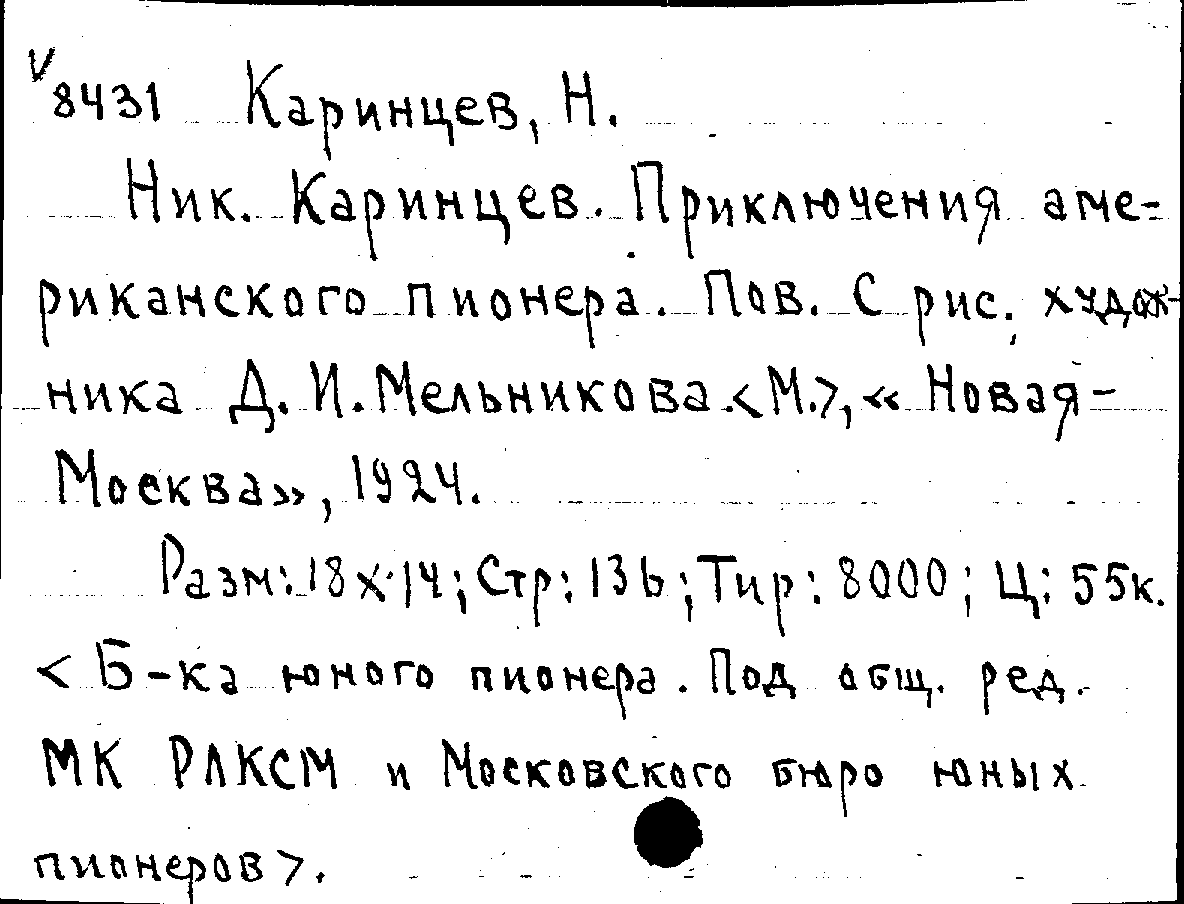 V
8431 Каринцев, Н.
Ник. Каринцев. Приключения аме-
риканского пионера. Пов. С рис. худож-
ника Д. И. Мельникова. <М.>, «Новая-
Москва», 1924.
Разм: 18х14; Стр: 136; Тир: 8000; Ц: 55к.
<Б-ка юного пионера. Под общ. ред.
МК РЛКСМ и Московского бюро юных
пионеров>.